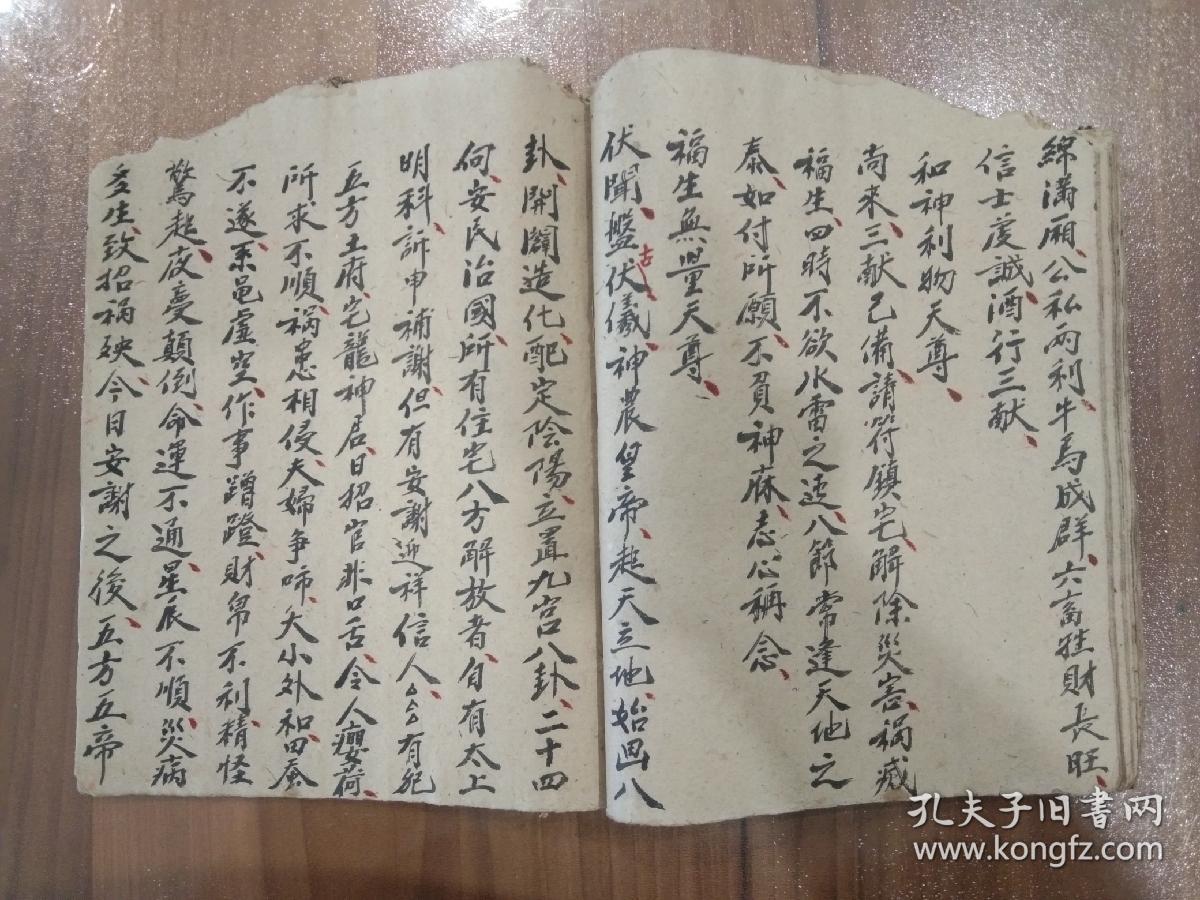 綿滿廂、公私兩利、牛馬成群、六畜牲財長旺、
信士虔誠、酒行三献、
和神利物天尊、
尚来、三献已備、請符鎮宅、解除災害、禍滅
福生、四時不欲水雷之迍、八節常逢天地之
泰、如付所願、不負神庥、志心稱念、
福生無量天尊、
伏聞、盤古伏儀、神農皇帝、起天立地、始画八
卦、開闢造化、配定陰陽、立置九宮八卦、二十四
向、安民治國、所有住宅八方解放者、自有太上
明科、訴申補謝、但有安謝迎祥信人厶厶有犯
五方土府、宅龍神居、日招官非口舌、令人痾、
所求不順、祸患相侵、夫婦争啼、大小外和、田蚕
不遂、系黾虚空、作事蹭蹬、財帛不利、精怪
驚起、夜夢顛倒、命運不通、星辰不順、災病
多生、致招祸殃、今日安謝之後、五方五帝
孔夫子旧书网
www.kongfz.com